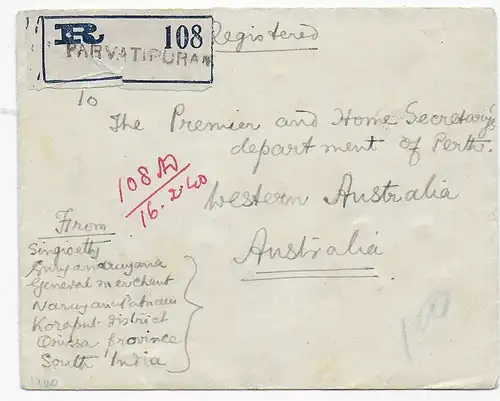 R 108
PARVATIPURAM
Registered
To
The Premier and Home Secretary's
department of Perth.
Western Australia
Australia
108 AD
16.2.40
From
Singisetty
Suryanarayana
General merchant
Narayanapatnam
Koraput district
Orissa province
South India